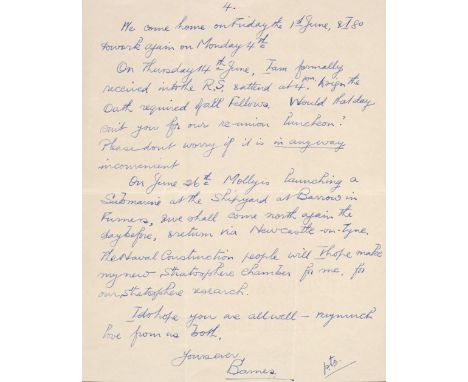 4.
We come home on Friday the 1st June, & I go
to work again on Monday 4th
On Thursday 14th June, I am formally
received into the R.S. at 4. pm. & sign the
Oath required of all Fellows. Would that day
suit you for our re-union luncheon?
Please don't worry if it is in any way
inconvenient
On June 26th Molly is launching a
Submarine at the Shipyard at Barrow in
Furness, & we shall come north again the
day before, & return via Newcastle-on-Tyne.
The Naval Construction people will I hope make
my new Stratosphere chamber for me, for
our stratosphere research.
I do hope you are all well – very much
love from us both.
Yours ever,
Barnes.
pto.